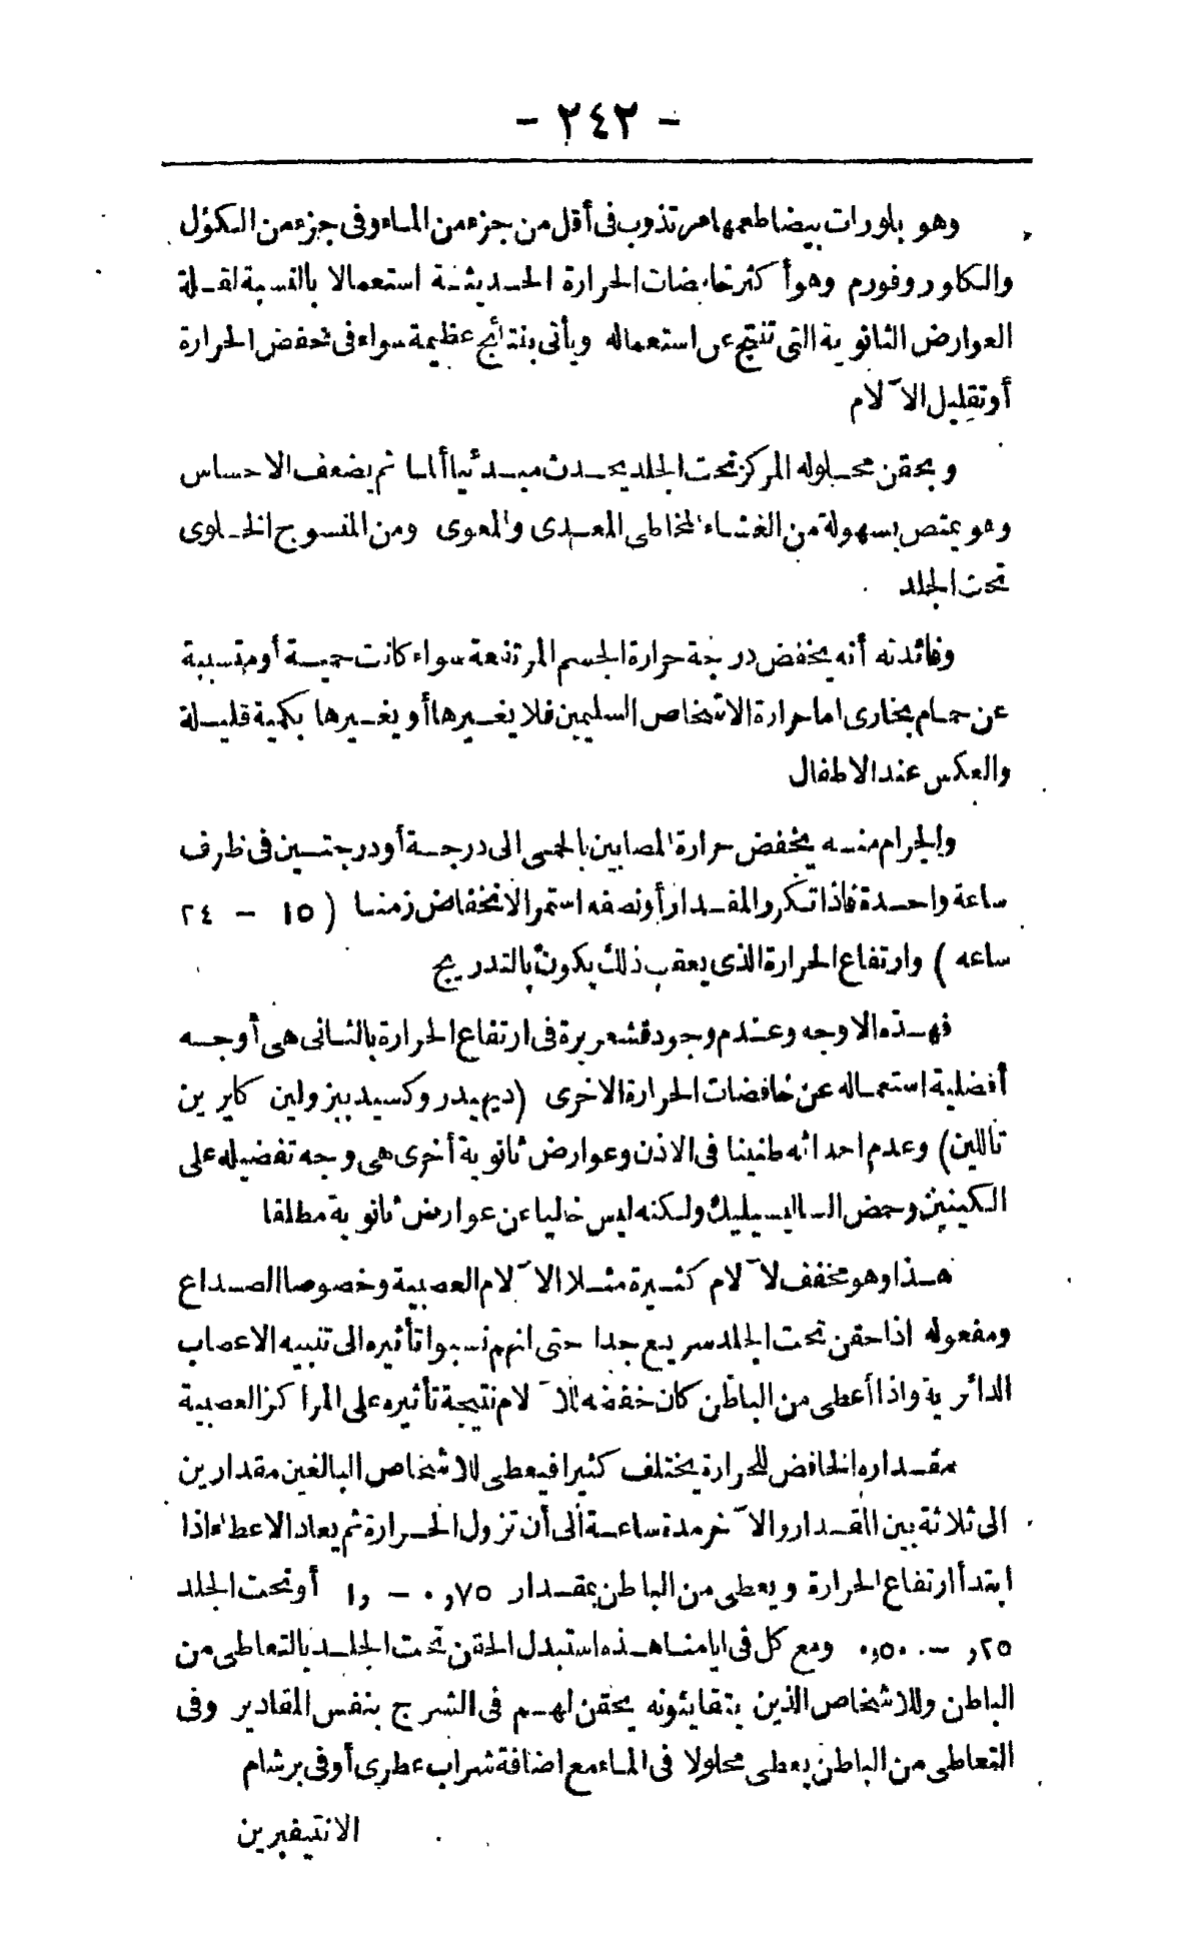 - ٢٤٢ -
وهو بلورات بيضا طعمها مر تذوب فى أقل من جزء من الماء وفى جزء من الكؤل
والكلوروفورم وهو أكثر خافضات الحرارة الحديثة استعمالا بالنسبة لقلة
العوارض الثانوية التى تنتج عن استعماله ويأتى بنتائج عظيمة سواء فى تخفض الحرارة
أو تقليل الآلام
وبحقن محلوله المركز تحت الجلد يحدث مبدئيا ألما ثم يضعف الاحساس
وهو يمتص بسهولة من الغشاء المخاطى المعدى والمعوى ومن المنسوج الخلوى
تحت الجلد
وفائدته أنه يخفض درجة حرارة الجسم المرتفعة سواء كانت حمية أو متسببة
عن حمام بخارى اما حرارة الاشخاص السليمين فلا يغيرها أو يغيرها بكمية قليلة
والعكس عند الاطفال
والجرام منه يخفض حرارة المصابين بالحمى الى درجة أو درجتين فى ظرف
ساعة واحدة فاذا تكرر المقدار أو نصفه استمر الانخفاض زمنا ( ١٥ - ٢٤
ساعه ) وارتفاع الحرارة الذى يعقب ذلك يكون بالتدريج
فهذه الاوجه وعدم وجود قشعريرة فى ارتفاع الحرارة بالثانى هى أوجه
أفضلية استعماله عن خافضات الحرارة الاخرى (ديهيدروكسيد بيزولين كايرين
تاللين) وعدم احداثه طنينا فى الاذن وعوارض ثانوية أخرى هى وجه تفضيله على
الكينين وحمض الساليسيليك ولكنه ليس خاليا عن عوارض ثانوية مطلقا
هذا وهو مخفف لآلام كثيرة مثلا الآلام العصبية وخصوصا الصداع
ومفعوله اذا حقن تحت الجلد سريع جدا حتى انهم نسبوا تأثيره الى تنبيه الاعصاب
الدائرية واذا أعطى من الباطن كان خفضه للآلام نتيجة تأثيره على المراكز العصبية
مقداره الخافض للحرارة يختلف كثيرا فيعطى للاشخاص البالغين مقدارين
الى ثلاثة بين المقدار والآخر مدة ساعة الى أن تزول الحرارة ثم يعاد الاعطاء اذا
ابتدأ ارتفاع الحرارة ويعطى من الباطن بمقدار ٠,٧٥ - ١, أو تحت الجلد
٢٥, - ٠,٥٠ ومع كل فى ايامنا هذه استبدل الحقن تحت الجلد بالتعاطى من
الباطن وللاشخاص الذين يتقايئونه يحقن لهم فى الشرج بنفس المقادير وفى
التعاطى من الباطن يعطى محلولا فى الماء مع اضافة شراب عطرى أو فى برشام
الانتيفبرين